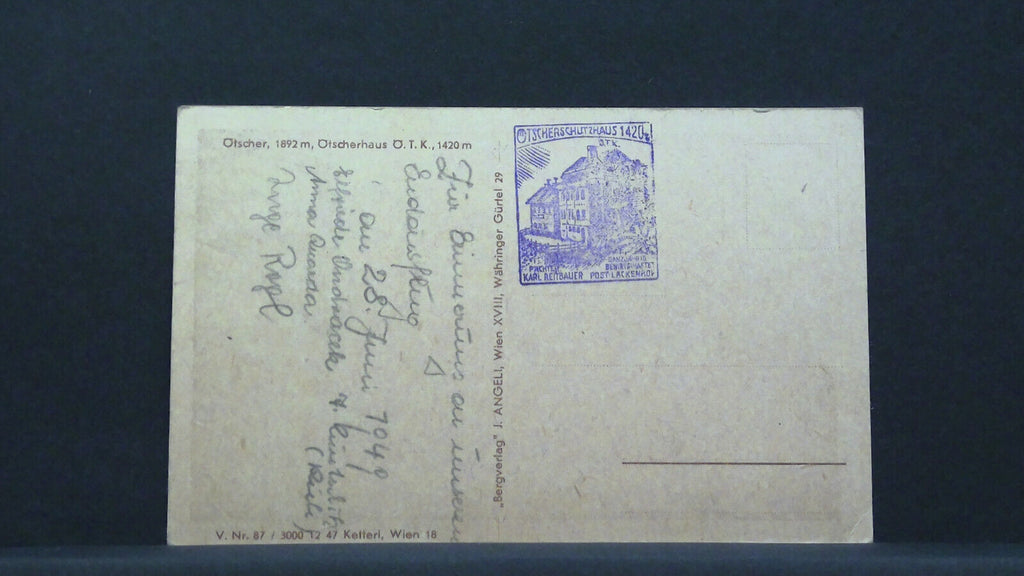 Ötscher, 1892 m, Ötscherhaus Ö. T. K., 1420 m
Für Erinnerung an unseren
am 28. Juni 1949
Elfriede
Anna
Inge
„Bergverlag" J. ANGELI, Wien XVIII, Währinger Gürtel 29
ÖTSCHERSCHUTZHAUS 1420
Ö.T.K.
GANZJÄHRIG
PÄCHTER BEWIRTSCHAFTET
KARL REITBAUER POST LACKENHOF
V. Nr. 87 / 3000 12 47 Ketterl, Wien 18